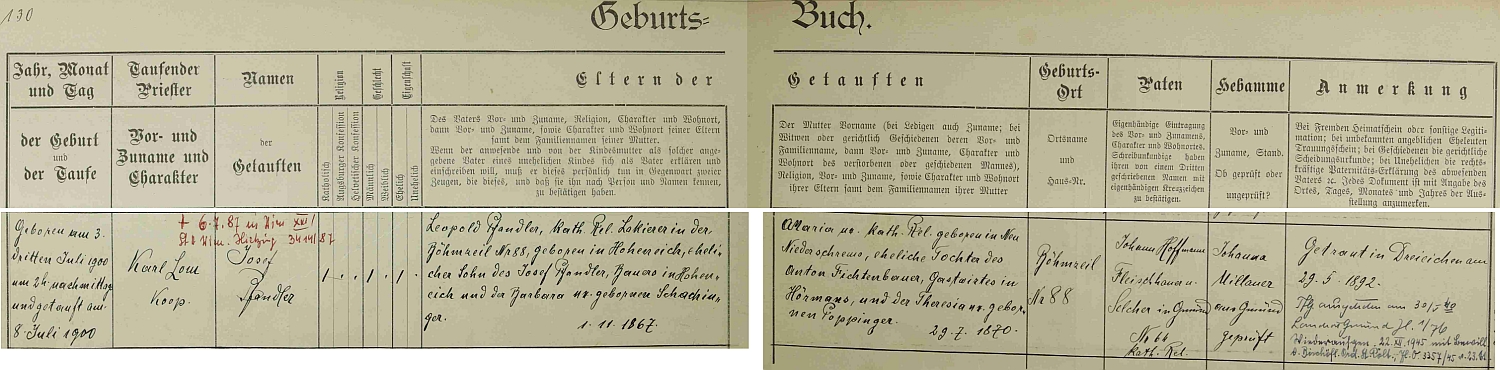 130
Geburts=
Buch.
Jahr, Monat
und Tag
Taufender
Priester
Namen
Religion
Geschlecht
Eigenschaft
Eltern der
Getauften
Geburts-
Ort
Paten
Hebamme
Anmerkung
der Geburt
und
der Taufe
Vor- und
Zuname und
Charakter
der
Getauften
Katholisch
Augsburger Konfession
Helvetischer Konfession
Männlich
Weiblich
Ehelich
Unehelich
Des Vaters Vor- und Zuname, Religion, Charakter und Wohnort,
dann Vor- und Zuname, sowie Charakter und Wohnort seiner Eltern
samt dem Familiennamen seiner Mutter.
Wenn der anwesende und von der Kindesmutter als solcher ange-
gebene Vater eines unehelichen Kindes sich als Vater erklären und
einschreiben will, muß er dieses persönlich tun in Gegenwart zweier
Zeugen, die dieses, und daß sie ihn nach Person und Namen kennen,
zu bestätigen haben.
Der Mutter Vorname (bei Ledigen auch Zuname; bei
Witwen oder gerichtlich Geschiedenen deren Vor- und
Familienname, dann Vor- und Zuname, Charakter und
Wohnort des verstorbenen oder geschiedenen Mannes),
Religion, Vor- und Zuname, sowie Charakter und Wohnort
ihrer Eltern samt dem Familiennamen ihrer Mutter
Ortsname
und
Haus-Nr.
Eigenhändige Eintragung
des Vor- und Zunamens,
Charakters und Wohnortes.
Schreibunkundige haben
ihren von einem Dritten
geschriebenen Namen mit
eigenhändigem Kreuzzeichen
zu bestätigen.
Vor- und
Zuname, Stand.
Ob geprüft oder
ungeprüft?
Bei Fremden Heimatschein oder sonstige Legiti-
mation; bei unbekannten angeblichen Eheleuten
Trauungsschein; bei Geschiedenen die gerichtliche
Scheidungsurkunde; bei Unehelichen die rechts-
kräftige Vaternitäts-Erklärung des abwesenden
Vaters ec. Jedes Dokument ist mit Angabe des
Ortes, Tages, Monates und Jahres der Aus-
stellung anzumerken.
Geboren am 3.
dritten Juli 1900
um 2h nachmittag
und getauft am
8. Juli 1900
Karl Lom
Koop.
+ 6.7.87 in Wien XXI/
Josef
Pfandler
Leopold Pfandler, kath. Rel. Lakierer in der
Böhmzeil Nr 88, geboren in Hoheneich, eheli-
cher Sohn des Josef Pfandler, Bauers in Hohen-
eich und der Barbara ux. gebornen Schachin-
ger.
1. 11. 1867.
Maria ux. kath. Rel. geboren in Neu
Niederschrems, eheliche Tochter des
Anton Fichtenbauer, Gastwirtes in
Hörmans, und der Theresia ux. gebor-
nen Poppinger.
29. 7. 1870.
Böhmzeil
Nr 88
Johann Hoffmann
Fleischhauer u.
Selcher in Gmünd
Nr 64
kath. Rel.
Johanna
Millauer
aus Gmünd
geprüft
Getraut in Dreieichen am
29. 5. 1892.